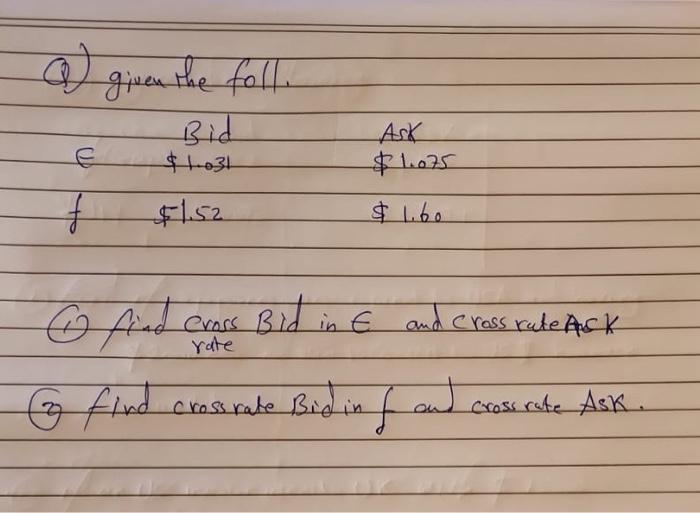 Q) given the foll.
Bid Ask
€ $1.031 $1.075
£ $1.52 $1.60
① find cross Bid in € and cross rate Ask
rate
② find cross rate Bid in £ and cross rate Ask.